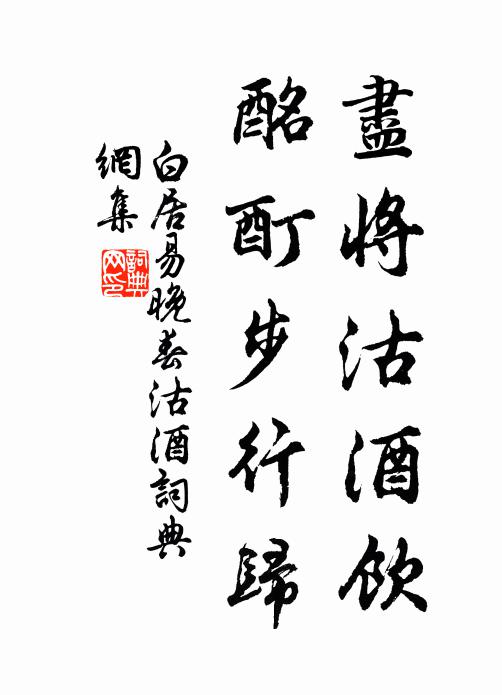 盡將沽酒飲
酩酊步行歸
白居易晚春沽酒詞典
網集
詞典
网印